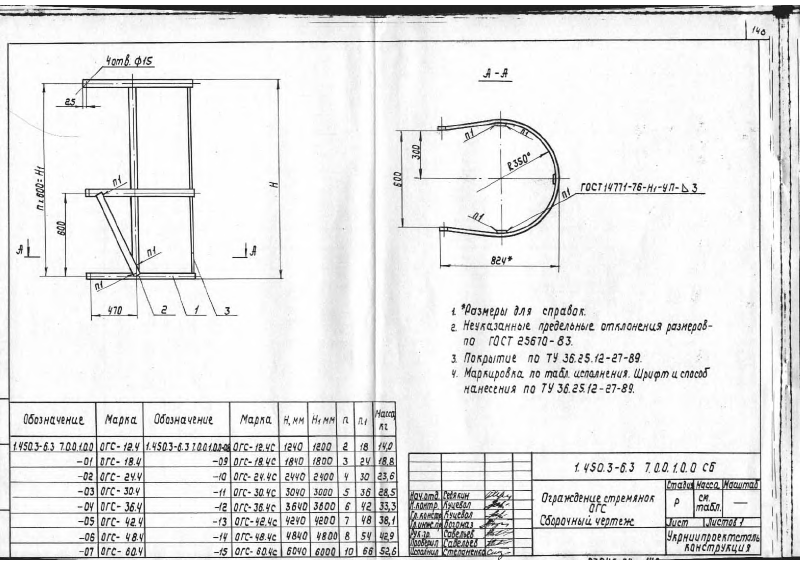 140
4отв. Ф15
25
n×600=H1
600
H
А
А
п1
п1
п1
470
2
1
3
А-А
п1
п1
п1
п1
R350*
300
600
824*
ГОСТ 14771-76-Н1-УП-◺3
1. *Размеры для справок.
2. Неуказанные предельные отклонения размеров-
по ГОСТ 25670-83.
3. Покрытие по ТУ 36.25.12-27-89.
4. Маркировка по табл. исполнения. Шрифт и способ
нанесения по ТУ 36.25.12-27-89.
Обозначение Марка Обозначение Марка H, мм H1 мм n п1 Масса кг
1.450.3-6.3 7.0.0.1.0.0 ОГС-12.4 1.450.3-6.3 7.0.0.1.0.0-08 ОГС-12.4с 1240 1200 2 18 14,0
-01 ОГС-18.4 -09 ОГС-18.4с 1840 1800 3 24 18,8
-02 ОГС-24.4 -10 ОГС-24.4с 2440 2400 4 30 23,6
-03 ОГС-30.4 -11 ОГС-30.4с 3040 3000 5 36 28,5
-04 ОГС-36.4 -12 ОГС-36.4с 3640 3600 6 42 33,3
-05 ОГС-42.4 -13 ОГС-42.4с 4240 4200 7 48 38,1
-06 ОГС-48.4 -14 ОГС-48.4с 4840 4800 8 54 42,9
-07 ОГС-60.4 -15 ОГС-60.4с 6040 6000 10 66 52,6
1.450.3-6.3 7.0.0.1.0.0 СБ
Нач.отд. Севякин
Н.контр. Куцевол
Гл.констр. Куцевол
Гл.инж.пр.
Рук.гр. Савельев
Проверил Савельев
Исполнил Степаненко
Ограждение стремянок
ОГС
Сборочный чертеж
Стадия Масса Масштаб
Р см. табл. —
Лист Листов 1
Укрниипроектсталь
конструкция